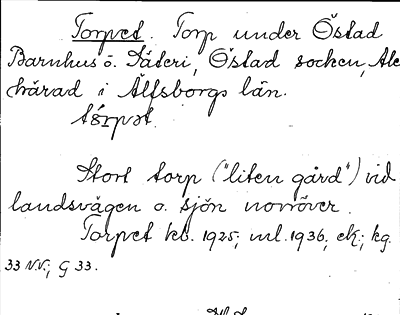 Torpet. Torp under Östad
Barnhus o. Säteri, Östad socken, Ale
härad i Älfsborgs län.
tɷrpət.
Stort torp ("liten gård") vid
landsvägen o. sjön norröver.
Torpet kb. 1925; ml. 1936, ek.; kg.
33 N.V.; G 33.